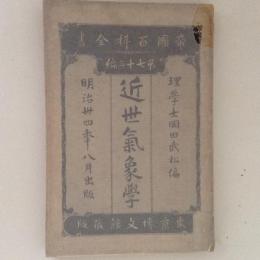 帝國百科全書
第七十二編
理學士岡田武松編
近世氣象學
明治卅四年八月出版
東京博文館蔵版